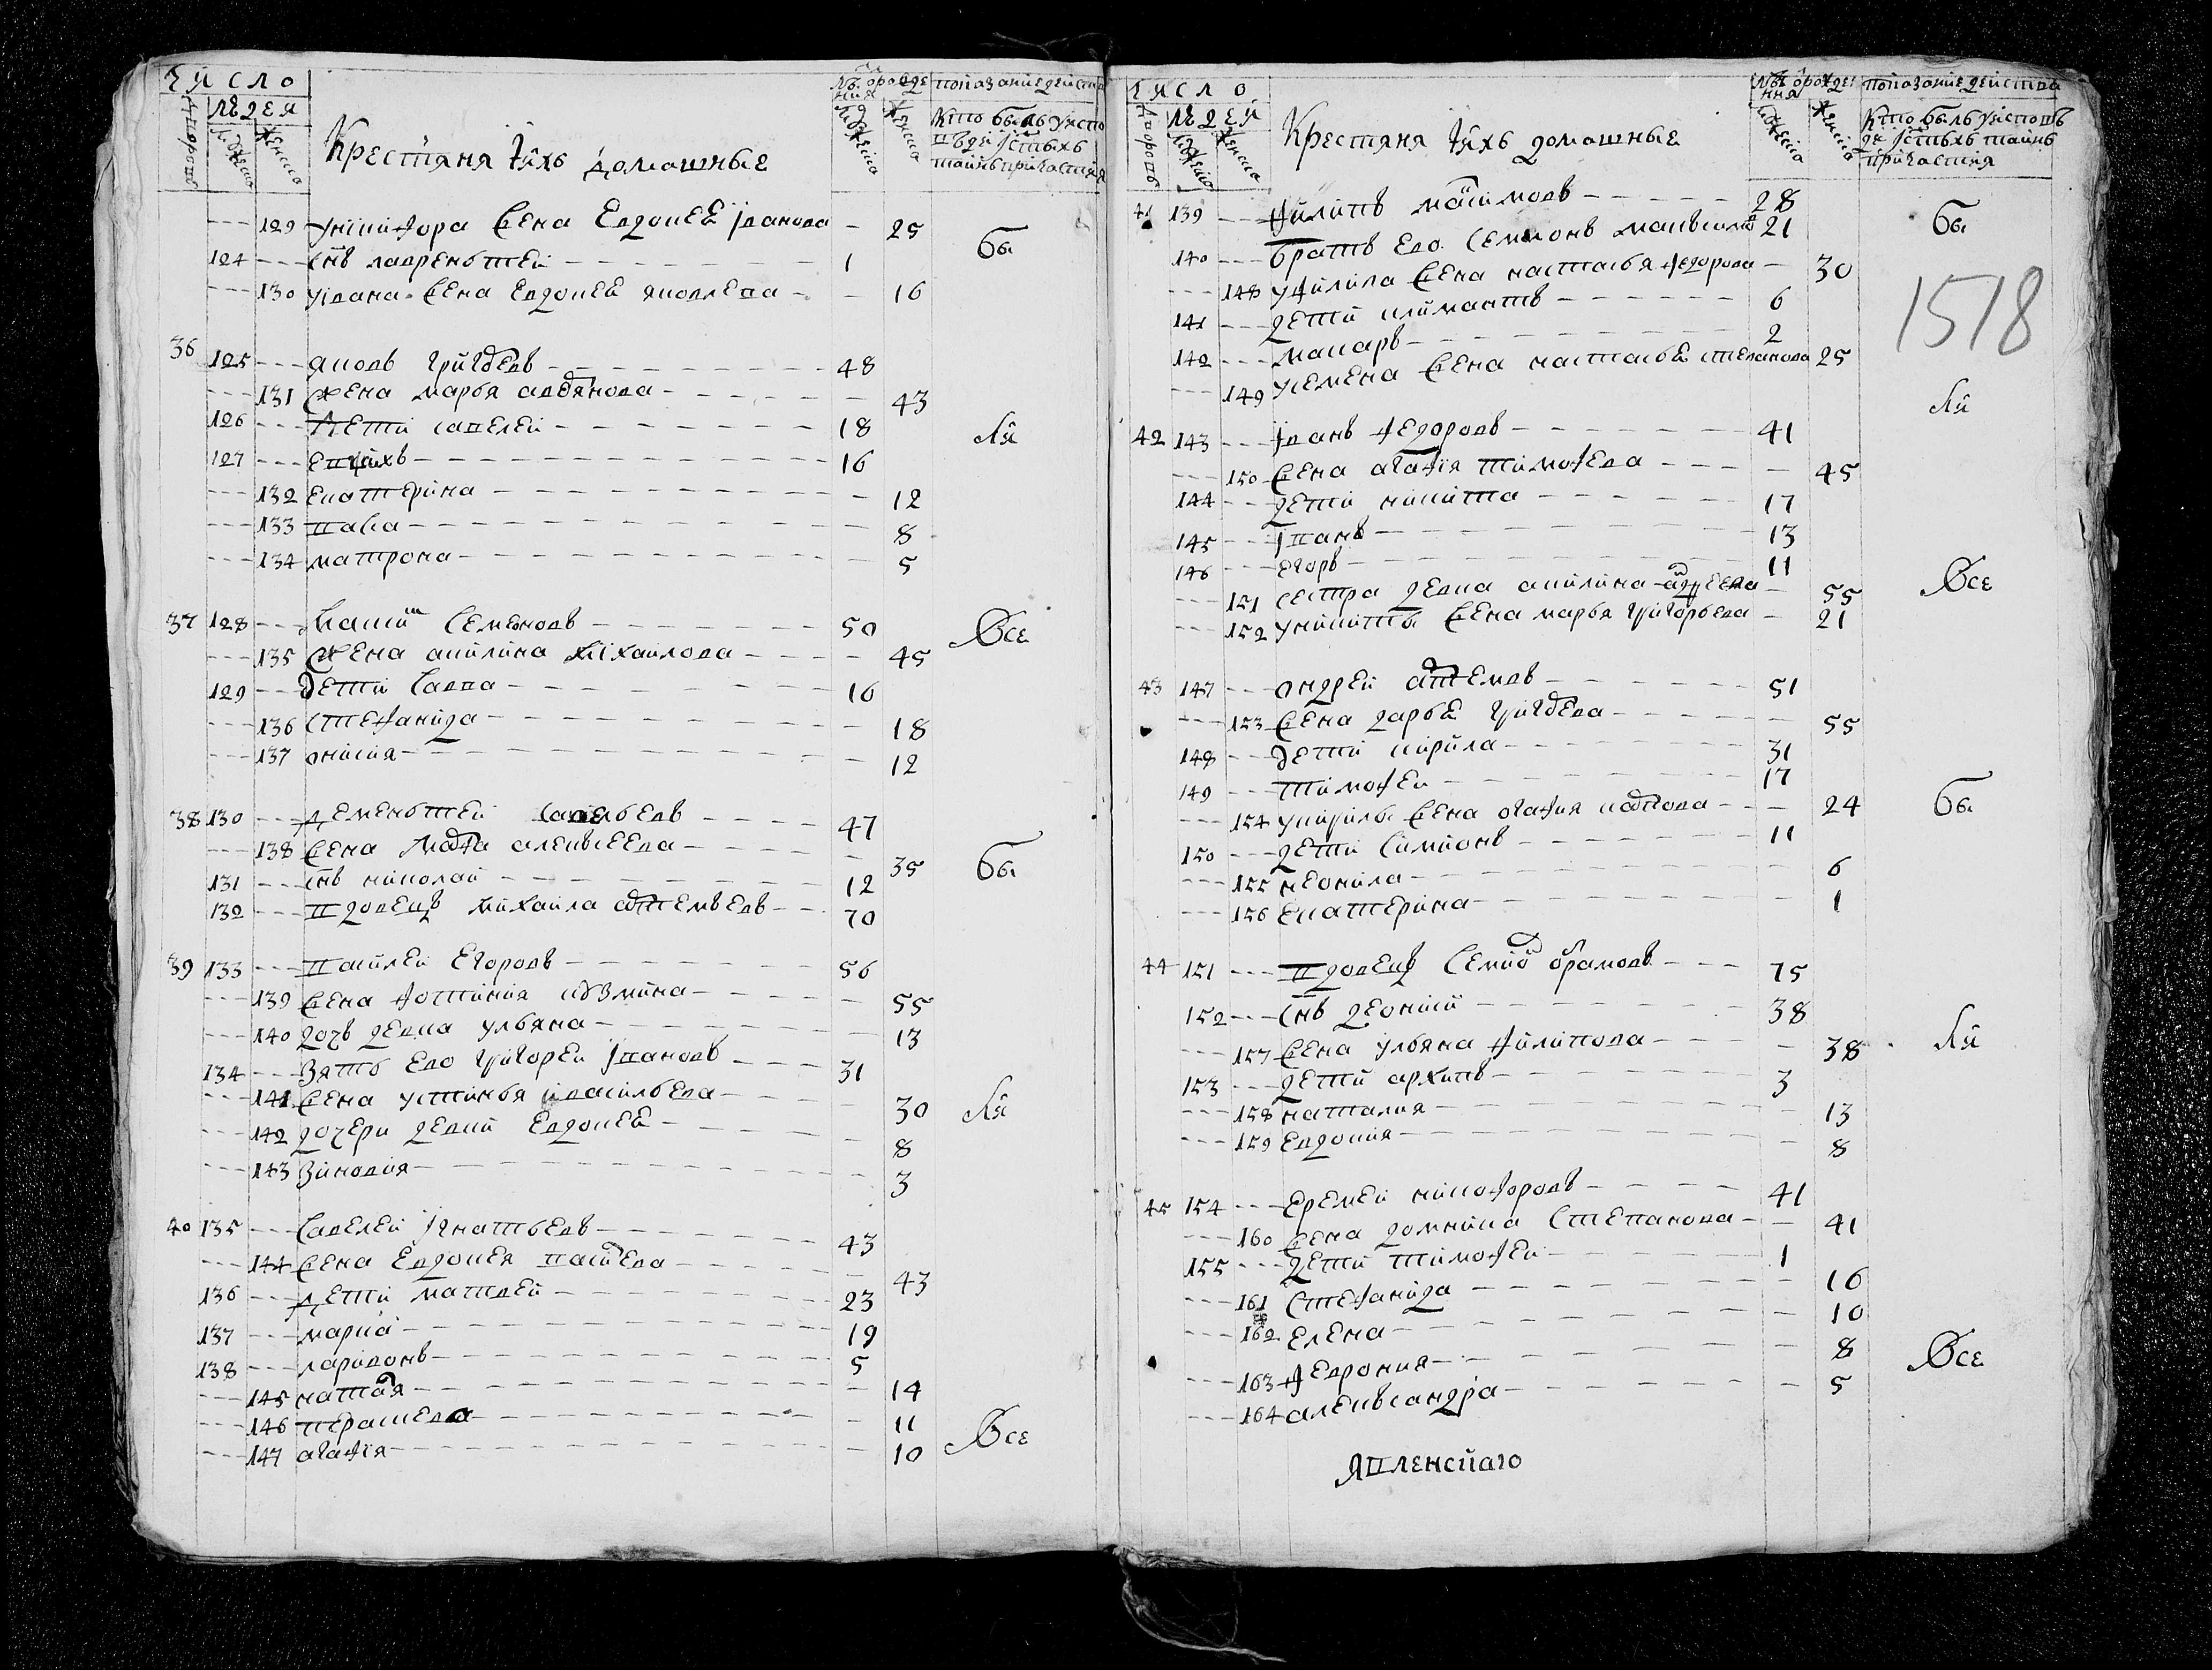 Число
людей
дворовъ
мужеска
женска
Крестяня и ихъ домашные
лѣта от рожде
ния
мужеска
женска
показание действа
Кто былъ у испо
веди и святыхъ
таинъ причастия
--- 129 у никифора жена Евдокея иванова - 25
бы
124 --- снъ лаврентей --- 1
--- 130 у ивана жена Евдокея яковлева - - 16
36 125 --- яковъ григорьевъ --- 48
--- 131 жена марья авдянова --- 43
126 --- дети савелей --- 18
ли
127 --- --- 16
--- 132 екатерина --- 12
--- 133 --- 8
--- 134 матрона --- 5
37 128 --- Семеновъ --- 50
Все
--- 135 жена акилина михаилова --- 45
129 --- дети савва --- 16
--- 136 стефанида --- 18
--- 137 --- 12
38 130 --- дементей савельевъ --- 47
--- 138 жена марфа алексеева --- 35
бы
131 --- снъ николай --- 12
132 --- вдовецъ михаила артемьевъ --- 70
39 133 --- Егоровъ --- 56
--- 139 жена фотиния кузмина --- 55
--- 140 дочь девка ульяна --- 13
134 --- зять ево григорей ивановъ --- 31
--- 141 жена устинья васильева --- 30
ли
--- 142 дочери девки Евдокея --- 8
--- 143 зиновия --- 3
40 135 --- Савелей игнатьевъ --- 43
--- 144 жена Евдокея --- 43
136 --- дети матвей --- 23
137 --- марка --- 19
138 --- ларивонъ --- 5
--- 145 наталя --- 14
--- 146 парасковья --- 11
--- 147 агафия --- 10
Все
Число
людей
дворовъ
мужеска
женска
Крестяня и ихъ домашные
лѣта от рожде
ния
мужеска
женска
показание действа
Кто былъ у испове
ди и святыхъ таинъ
причастия
41 139 --- филипъ максимовъ --- 28
бы
140 --- братъ ево Семионъ максимовъ 21
--- 148 у филипа жена настасья федорова - 30
1518
141 --- дети климантъ --- 6
142 --- макаръ --- 2
--- 149 у семена жена настасья степанова 25
ли
42 143 --- иванъ федоровъ --- 41
--- 150 жена агафия тимофева --- 45
144 --- дети никита --- 17
145 --- иванъ --- 13
146 --- егоръ --- 11
--- 151 сестра девка акилина андреева - 55
Все
--- 152 у никиты жена марья григорьева - 21
43 147 --- андрей артемовъ --- 51
--- 153 жена дарья григорьева --- 55
148 --- дети кирила --- 31
149 --- тимофей --- 17
--- 154 у кирилы жена агафия карпова --- 24
бы
150 --- дети симионъ --- 11
--- 155 неонила --- 6
--- 156 екатерина --- 1
44 151 --- вдовецъ абрамовъ --- 75
152 --- снъ деонисий --- 38
--- 157 жена ульяна филипова --- 38
ли
153 --- дети архипъ --- 3
--- 158 наталия --- 13
--- 159 евдокия --- 8
45 154 --- еремей никифоровъ --- 41
--- 160 жена домника Степанова --- 41
155 --- дети тимофей --- 1
--- 161 стефанида --- 16
--- 162 елена --- 10
--- 163 феврония --- 8
Все
--- 164 александра --- 5
явленскаго